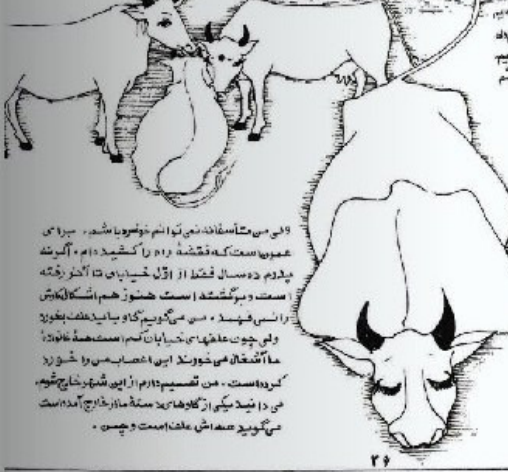 ولی من متأسفانه نمی توانم خونسرد باشم. برای
همین است که نقشهٔ راه را کشیده ام. اگر نه
پدرم ده سال فقط از اوّل خیابان تا آخر رفته
است و برگشته است هنوز هم اشکال کارش
را نمی فهمد. من می گویم گاو باید علف بخورد
ولی چون علفهای خیابان کم است همهٔ خانوادهٔ
ما آشغال می خورند این اعصاب من را خورد
کرده است. من تصمیم دارم از این شهر خارج شوم.
می دانید یکی از گاوهای دستهٔ ما از خارج آمده است
می گوید همه اش علف است و چمن.
۲۶